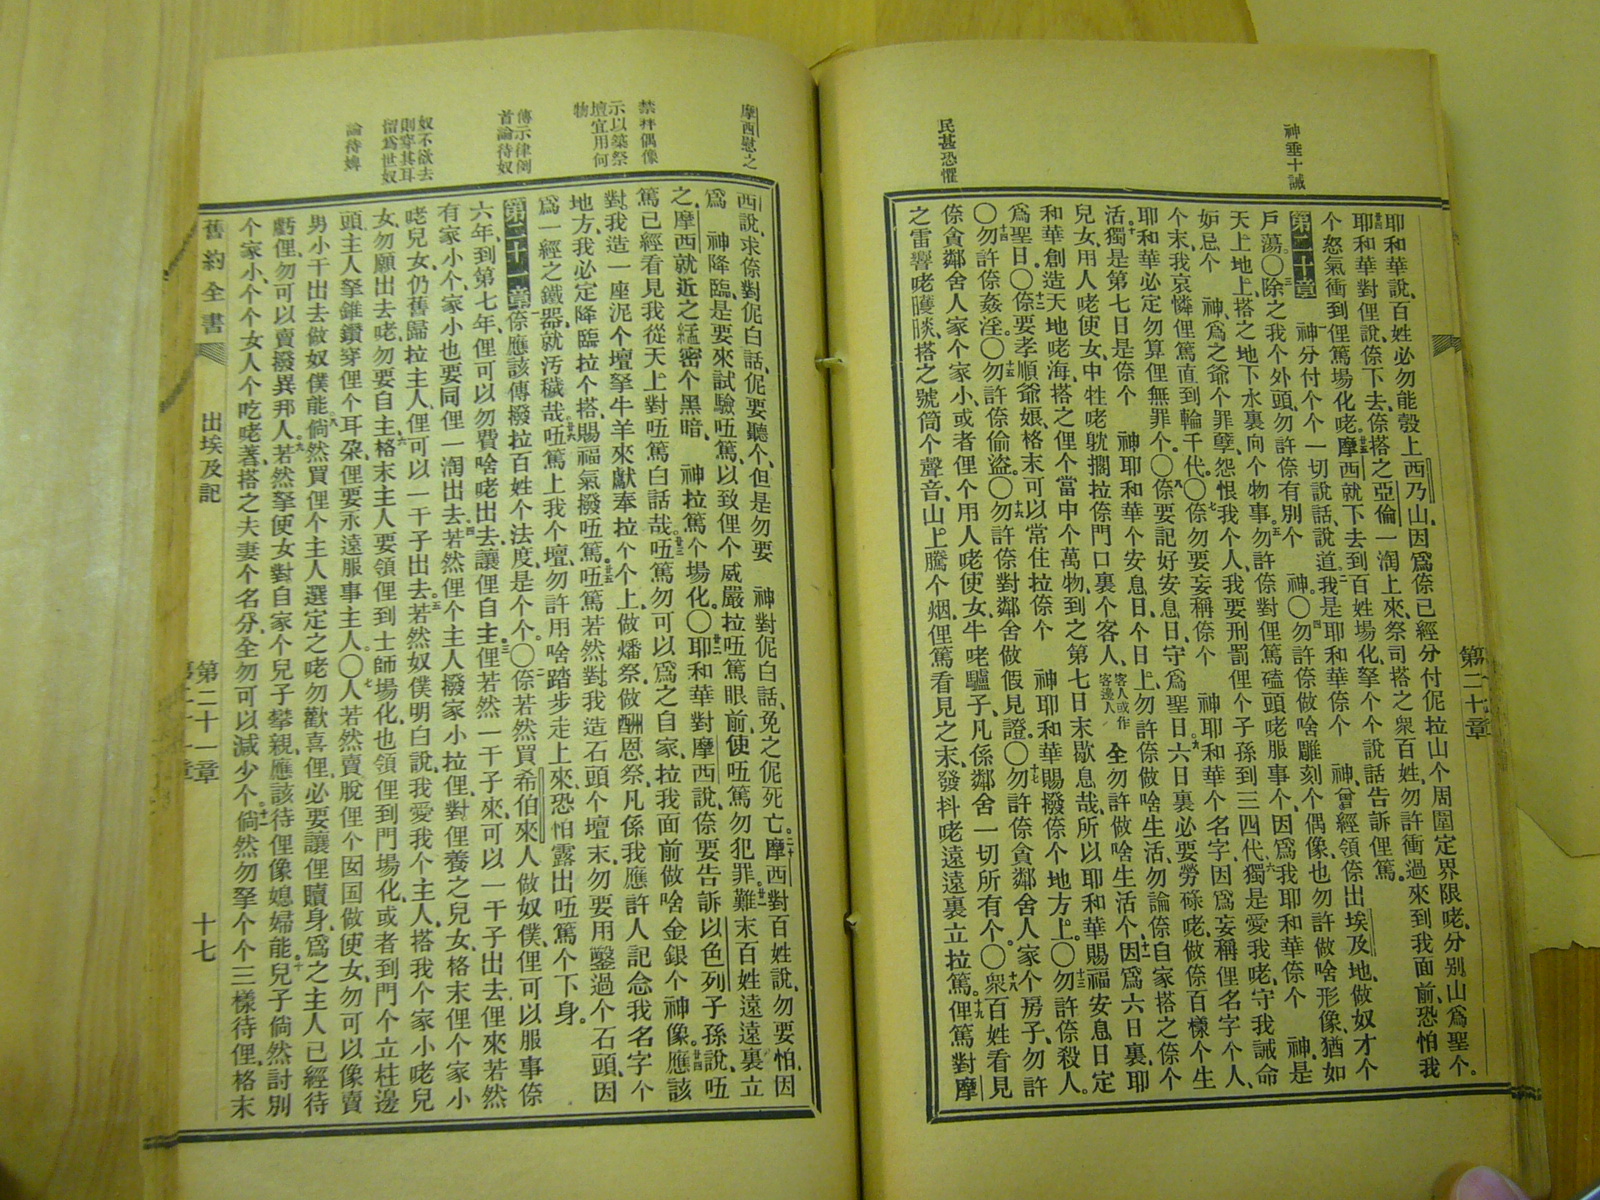 神垂十誡
民甚恐懼
耶和華說、百姓必勿能彀上西乃山、因爲倷已經分付伲拉山个周圍定界限咾、分别山爲聖个。
耶和華對俚說、倷下去、倷搭之亞倫一淘上來、祭司搭之衆百姓、勿許衝過來到我面前、恐怕我
个怒氣衝到俚篤場化咾。摩西就下去到百姓場化、拏个个說話告訴俚篤。
第二十章 神分付个个一切說話、說道、我是耶和華倷个 神、曾經領倷出埃及地、做奴才个
戶蕩。〇除之我个外頭、勿許倷有別个 神。〇勿許倷做啥雕刻个偶像、也勿許做啥形像、猶如
天上地上、搭之地下水裏向个物事、勿許倷對俚篤磕頭咾服事个、因爲我耶和華倷个 神、是
妒忌个 神、爲之爺个罪孽、怨恨我个人、我要刑罰俚个子孫到三四代、獨是愛我咾、守我誡命
个末、我哀憐俚篤直到幾千代。〇倷勿要妄稱倷个 神耶和華个名字、因爲妄稱俚名字个人、
耶和華必定勿算俚無罪个。〇倷要記好安息日、守爲聖日、六日裏必要勞碌咾做倷百樣个生
活、獨是第七日是倷个 神耶和華个安息日、个日上、勿許倷做啥生活、勿論倷自家搭之倷个
兒女、用人咾使女、中牲咾躭擱拉倷門口裏个客人、客人或作客邊人全勿許做啥生活个、因爲六日裏、耶
和華創造天地咾海、搭之俚个當中个萬物、到之第七日末歇息哉、所以耶和華賜福安息日定
爲聖日。〇倷要孝順爺娘、格末可以常住拉倷个 神耶和華賜撥倷个地方上。〇勿許倷殺人。
〇勿許倷姦淫。〇勿許倷偷盜。〇勿許倷對鄰舍做假見證。〇勿許倷貪鄰舍人家个房子、勿許
倷貪鄰舍人家个家小、或者俚个用人咾使女、牛咾驢子、凡係鄰舍一切所有个。〇衆百姓看見
之雷響咾矆睒、搭之號筒个聲音、山上騰个烟、俚篤看見之末、發抖咾遠遠裏立拉篤。俚篤對摩
第二十章
摩西慰之
禁拜偶像
示以築祭壇宜用何物
傳示律例首論待奴
奴不欲去則穿其耳留爲世奴
論待婢
西說、求倷對伲白話、伲要聽个、但是勿要 神對伲白話、免之伲死亡。摩西對百姓說、勿要怕、因
爲 神降臨、是要來試驗㕶篤、以致俚个威嚴拉㕶篤眼前、使㕶篤勿犯罪。難末百姓遠遠裏立
之、摩西就近之緜密个黑暗、 神拉篤个場化。〇耶和華對摩西說、倷要告訴以色列子孫說、㕶
篤已經看見我從天上對㕶篤白話哉。㕶篤勿可以爲之自家、拉我面前做啥金銀个神像。應該
對我造一座泥个壇、拏牛羊來獻奉拉个个上、做燔祭做酬恩祭、凡係我應許人記念我名字个
地方、我必定降臨拉个搭、賜福氣撥㕶篤。㕶篤若然對我造石頭个壇末、勿要用鑿過个石頭、因
爲一經之鐵器、就汚穢哉。㕶篤上我个壇、勿許用啥踏步走上來、恐怕露出㕶篤个下身。
第二十一章 倷應該傳撥拉百姓个法度、是个个。〇倷若然買希伯來人做奴僕、俚可以服事倷
六年、到第七年、俚可以勿費啥咾出去、讓俚自主。俚若然一干子來、可以一干子出去、俚來若然
有家小个、家小也要同俚一淘出去。若然俚个主人撥家小拉俚、對俚養之兒女、格末俚个家小
咾兒女、仍舊歸拉主人、俚可以一干子出去。若然奴僕明白說、我愛我个主人、搭我个家小咾兒
女、勿願出去咾、勿要自主、格末主人要領俚到士師場化、也領俚到門場化、或者到門个立柱邊
頭、主人拏錐鑽穿俚个耳朶、俚要永遠服事主人。〇人若然賣脫俚个囡囯做使女、勿可以像賣
男小干出去做奴僕能。倘然買俚个主人選定之咾、勿歡喜俚、必要讓俚贖身、爲之主人已經待
虧俚、勿可以賣撥異邦人。若然拏使女對自家个兒子攀親、應該待俚像媳婦能。兒子倘然討別
个家小、个个女人个吃咾著、搭之夫妻个名分、全勿可以減少个。倘然勿拏个个三樣待俚、格末
舊約全書 出埃及記 第二十一章 十七